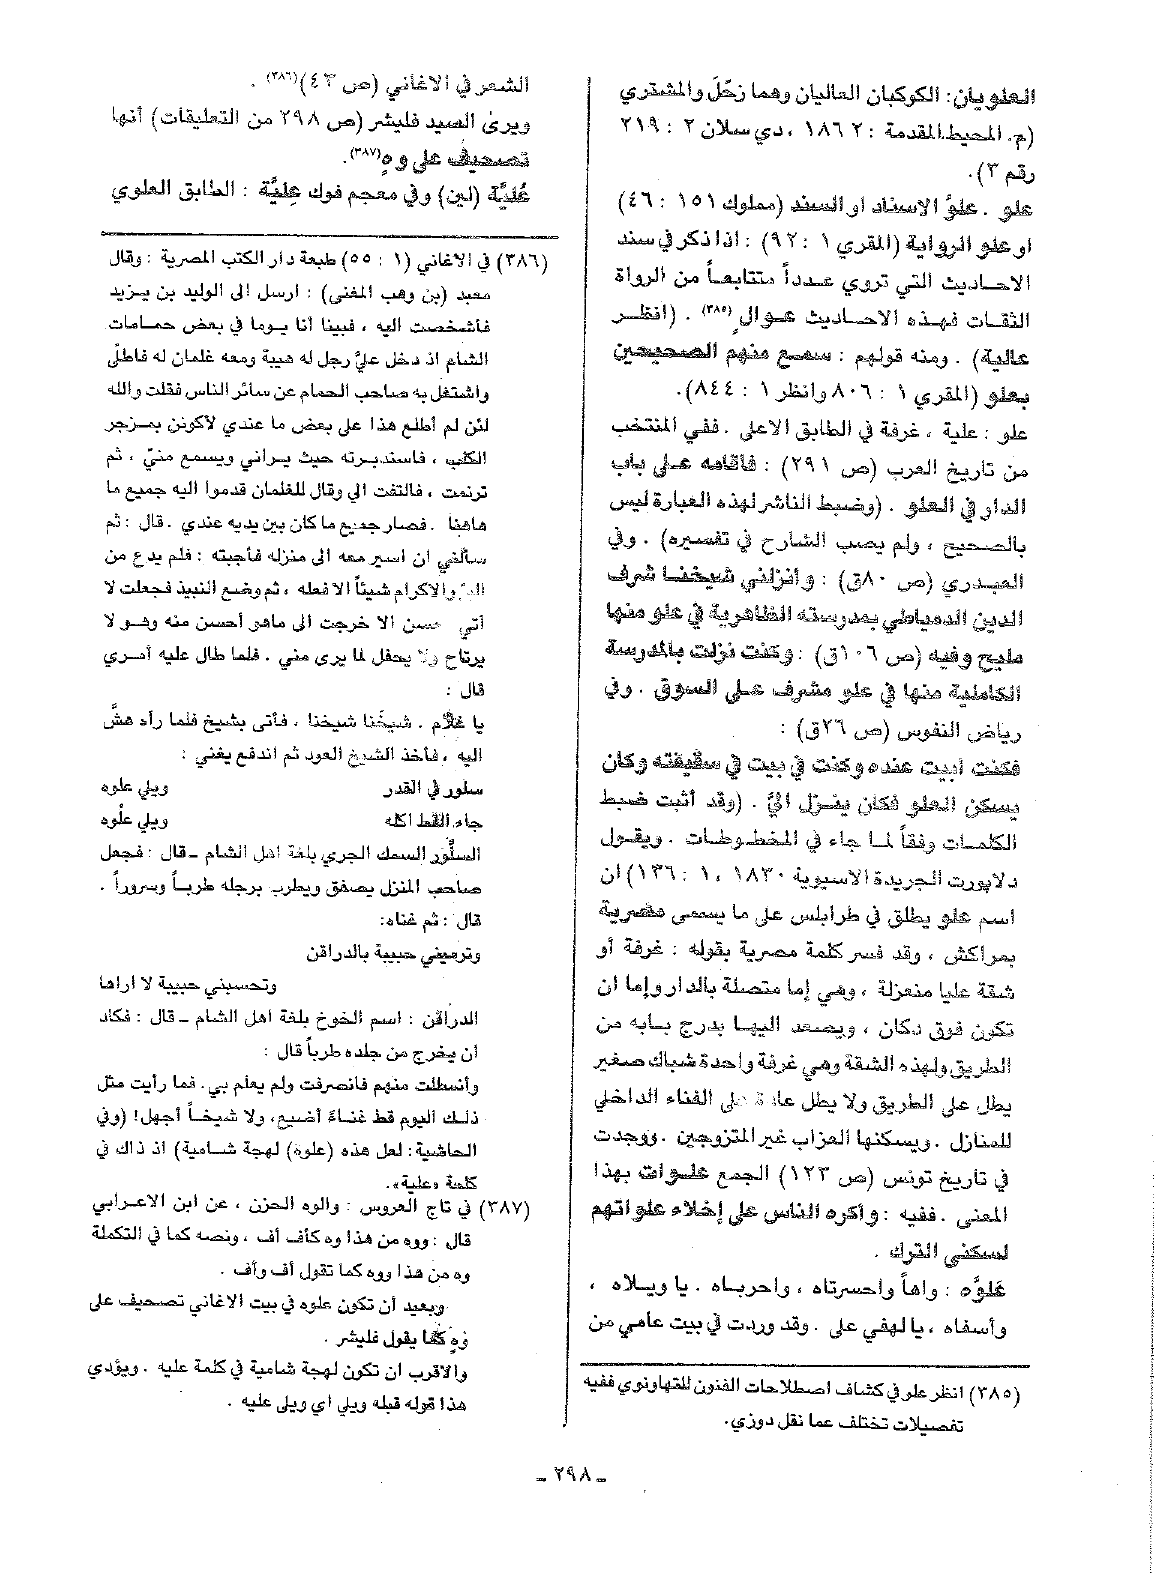 العلويان: الكوكبان العاليان وهما زحَل والمشتري
(م. المحيط.المقدمة : ٢ ١٨٦ ، دي سلان ٢ : ٢١٩
رقم ٣).
علو . علوُّ الاسناد او السند (مملوك ١٥١ : ٤٦)
او علو الرواية (المقري ١ : ٩٢) : اذا ذكر في سند
الاحاديث التي تروي عدداً متتابعاً من الرواة
الثقات فهذه الاحاديث عوالٍ (٣٨٥) . (انظر
عالية) . ومنه قولهم : سمع منهم الصحيحين
بعلو (المقري ١ : ٨٠٦ وانظر ١ : ٨٤٤).
علو : علية ، غرفة في الطابق الاعلى . ففي المنتخب
من تاريخ العرب (ص ٢٩١) : فاقامه على باب
الدار في العلو . (وضبط الناشر لهذه العبارة ليس
بالصحيح ، ولم يصب الشارح في تفسيره) . وفي
العبدري (ص ٨٠ق) : وأنزلني شيخنا شرف
الدين الدمياطي بمدرسته الظاهرية في علو منها
مليح وفيه (ص ١٠٦ق) : وكنت نزلت بالمدرسة
الكاملية منها في علو مشرف على السوق . وفي
رياض النفوس (ص ٢٦ق) :
فكنت أبيت عنده وكنت في بيت في سقيفته وكان
يسكن العلو فكان ينزل اليّ . (وقد أثبت ضبط
الكلمات وفقاً لما جاء في المخطوطات . ويقول
دلابورت الجريدة الاسيوية ١٨٣٠ ، ١ : ١٣٦) ان
اسم علو يطلق في طرابلس على ما يسمى مصرية
بمراكش ، وقد فسر كلمة مصرية بقوله : غرفة أو
شقة عليا منعزلة ، وهي إما متصلة بالدار وإما ان
تكون فوق دكان ، ويصعد اليها بدرج بابه من
الطريق ولهذه الشقة وهي غرفة واحدة شباك صغير
يطل على الطريق ولا يطل عادة على الفناء الداخلي
للمنازل . ويسكنها العزاب غير المتزوجين . ووجدت
في تاريخ تونس (ص ١٢٣) الجمع علوات بهذا
المعنى . ففيه : وأكره الناس على إخلاء علواتهم
لسكنى الترك .
عَلوَّه : واهاً واحسرتاه ، واحرباه . يا ويلاه ،
وأسفاه ، يا لهفي على . وقد وردت في بيت عامي من
(٣٨٥) انظر علو في كشاف اصطلاحات الفنون للتهاونوي ففيه
تفصيلات تختلف عما نقل دوزي.
الشعر في الاغاني (ص ٤٣)(٣٨٦) .
ويرى السيد فليشر (ص ٢٩٨ من التعليقات) أنها
تصحيف على وهِ(٣٨٧).
عُليَّة (لين) وفي معجم فوك عِليَّة : الطابق العلوي
(٣٨٦) في الاغاني (١ : ٥٥) طبعة دار الكتب المصرية : وقال
معبد (بن وهب المغنى) : ارسل الى الوليد بن يزيد
فأشخصت اليه ، فبينا أنا يوما في بعض حمامات
الشام اذ دخل عليَّ رجل له هيبة ومعه غلمان له فاطلّى
واشتغل به صاحب الحمام عن سائر الناس فقلت والله
لئن لم أطلع هذا على بعض ما عندي لأكونن بمزجر
الكلب ، فاستدبرته حيث يراني ويسمع منيّ ، ثم
ترنمت ، فالتفت الي وقال للغلمان قدموا اليه جميع ما
هاهنا . فصار جميع ما كان بين يديه عندي . قال : ثم
سألني ان اسير معه الى منزله فأجبته : فلم يدع من
البرّ والاكرام شيئاً الا فعله ، ثم وضع النبيذ فجعلت لا
أتي بحسن الا خرجت الى ماهو أحسن منه وهو لا
يرتاح ولا يحفل لما يرى مني . فلما طال عليه أمري
قال :
يا غلام . شيخَنا شيخنا ، فأتى بشيخ فلما رآه هشَّ
اليه ، فأخذ الشيخ العود ثم اندفع يغني :
سلور في القدر ويلي علوه
جاء القط اكله ويلي علُوه
السلَّور السمك الجري بلغة اهل الشام ـ قال : فجعل
صاحب المنزل يصفق ويطرب برجله طرباً وسروراً .
قال : ثم غناه:
وترميني حبيبة بالدراقن
وتحسبني حبيبة لا اراها
الدراقن : اسم الخوخ بلغة اهل الشام ـ قال : فكاد
أن يخرج من جلده طرباً قال :
وأنسللت منهم فانصرفت ولم يعلم بي. فما رأيت مثل
ذلك اليوم قط غناءً أضيع، ولا شيخاً أجهل! (وفي
الحاشية : لعل هذه (علوه) لهجة شامية) اذ ذاك في
كلمة «علية».
(٣٨٧) في تاج العروس : والوه الحزن ، عن ابن الاعرابي
قال : ووه من هذا وه كأف أف ، ونصه كما في التكملة
وه من هذا ووه كما تقول أف وأف .
وبعيد أن تكون علوه في بيت الاغاني تصحيف على
وَهٍ كما يقول فليشر .
والاقرب ان تكون لهجة شامية في كلمة عليه . ويؤدي
هذا قوله قبله ويلي اي ويلى عليه .
ـ ٢٩٨ ـ